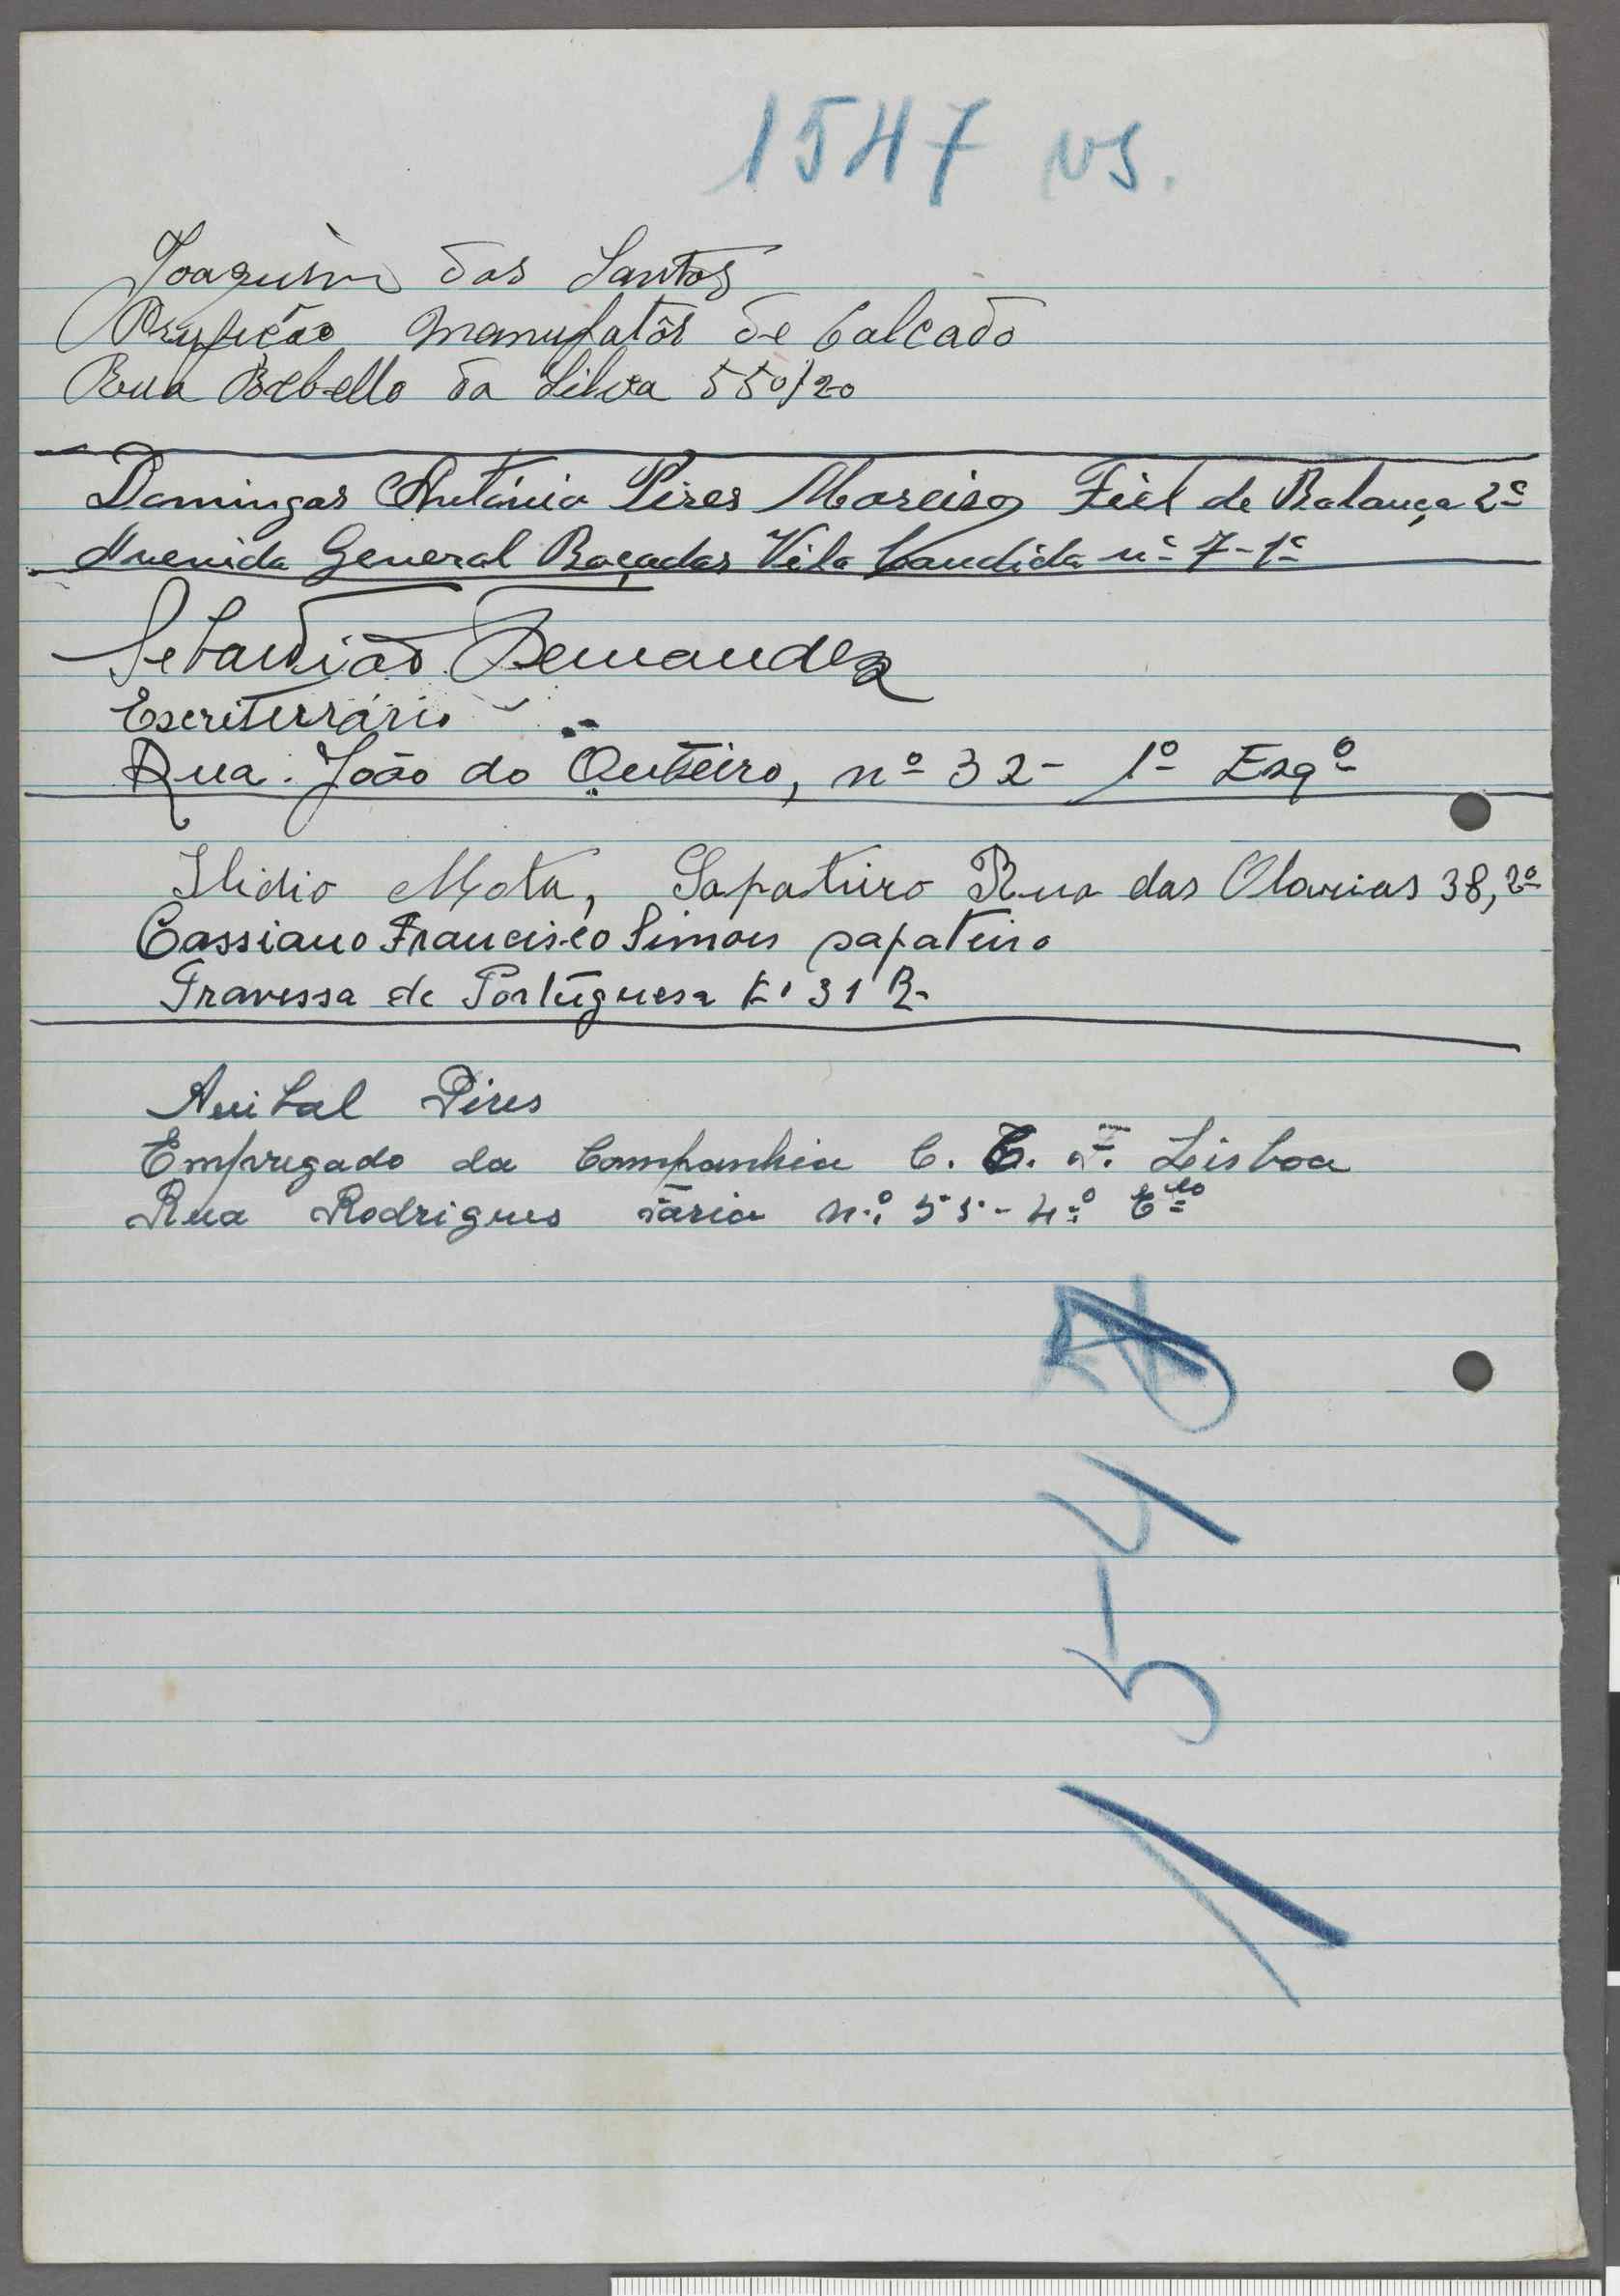 1547 vs.
Joaquim dos Santos
Prufição manufatôr de Calcado
Rua Rebello da Silva 55 0/20
Domingos António Pires Moreiso Fiel de Balança 2º
Avenida General Roçadas Vila Candida nº 7-1º
Sebastião Fernandez
Escriturário
Rua João do Outeiro, nº 32- 1º Esqº
Ilidio Mota, Sapateiro Rua das Olarias 38, 2º
Cassiano Francisco Simões sapateiro
Travessa de Portuguesa 31 R
Anibal Pires
Empregado da Companhia C. C. F. Lisboa
Rua Rodrigues Faria n.º 55-4.º
15-4